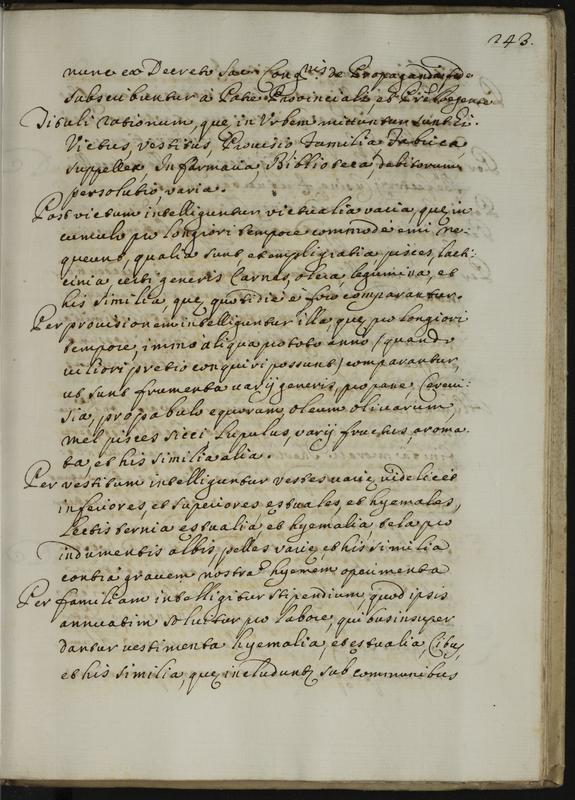 243.
nunc ex Decreto Sac. Cong.nis de Propaganda fide
subscribuntur à Patre Provinciali, et
Tituli rationum, que in Urbem mittuntur sunt hi.
Victus, vestitus, Provisio Familia Fabrica,
suppellex, Infirmaria Bibliotheca debitorum
persolutio, varia.
Post victum intelliguntur victualia varia, que in
cumulo pro longiori tempore commode emi ne=
queunt, qualia sunt exempli gratia pisces, lacti=
cinia, certi generis Carnes, olera, legumina, et
his similia, que quotidie è foro comparantur.
Per provisionem intelliguntur illa que pro longiori
tempore, immo aliqua pro toto anno (quando
viliori pretio conquiri possunt) comparantur,
ut sunt frumenta varij generis, pro pane Cerevi=
sia, pro pabulo equorum, oleum olivarum,
mel pisces sicci Lupulus, varij fructus, aroma
ta, et his similia alia.
Per vestitum intelliguntur vestes varie, videlicet
inferiores et superiores estivales, et hyemales,
Lectisternia estivalia et hyemalia, tela pro
indumentis albis, pelles varie, et his similia
contra gravem nostram hyemem operimenta
Per familiam intelligitur stipendium, quod ipsis
annuatim solvitur pro labore, quibus insuper
dantur vestimenta hyemalia, et estivalia, Cibus,
et his similia, que includuntur sub communibus